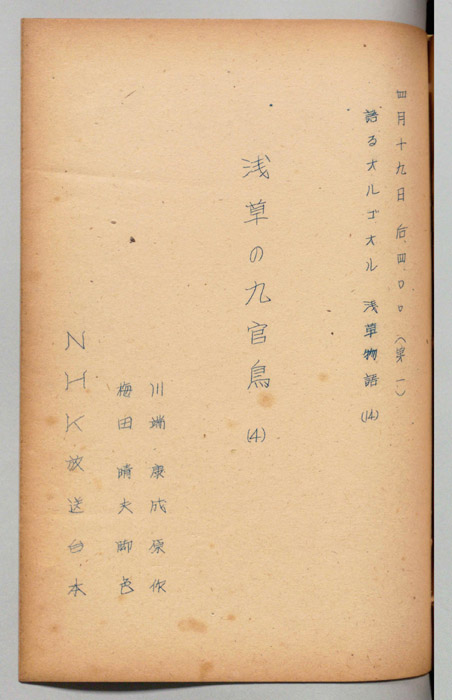 四月十九日 后四00（第一）
語るオルゴオル 浅草物語(14)
浅草の九官鳥(4)
川端康成原作
梅田晴夫脚色
NHK放送台本